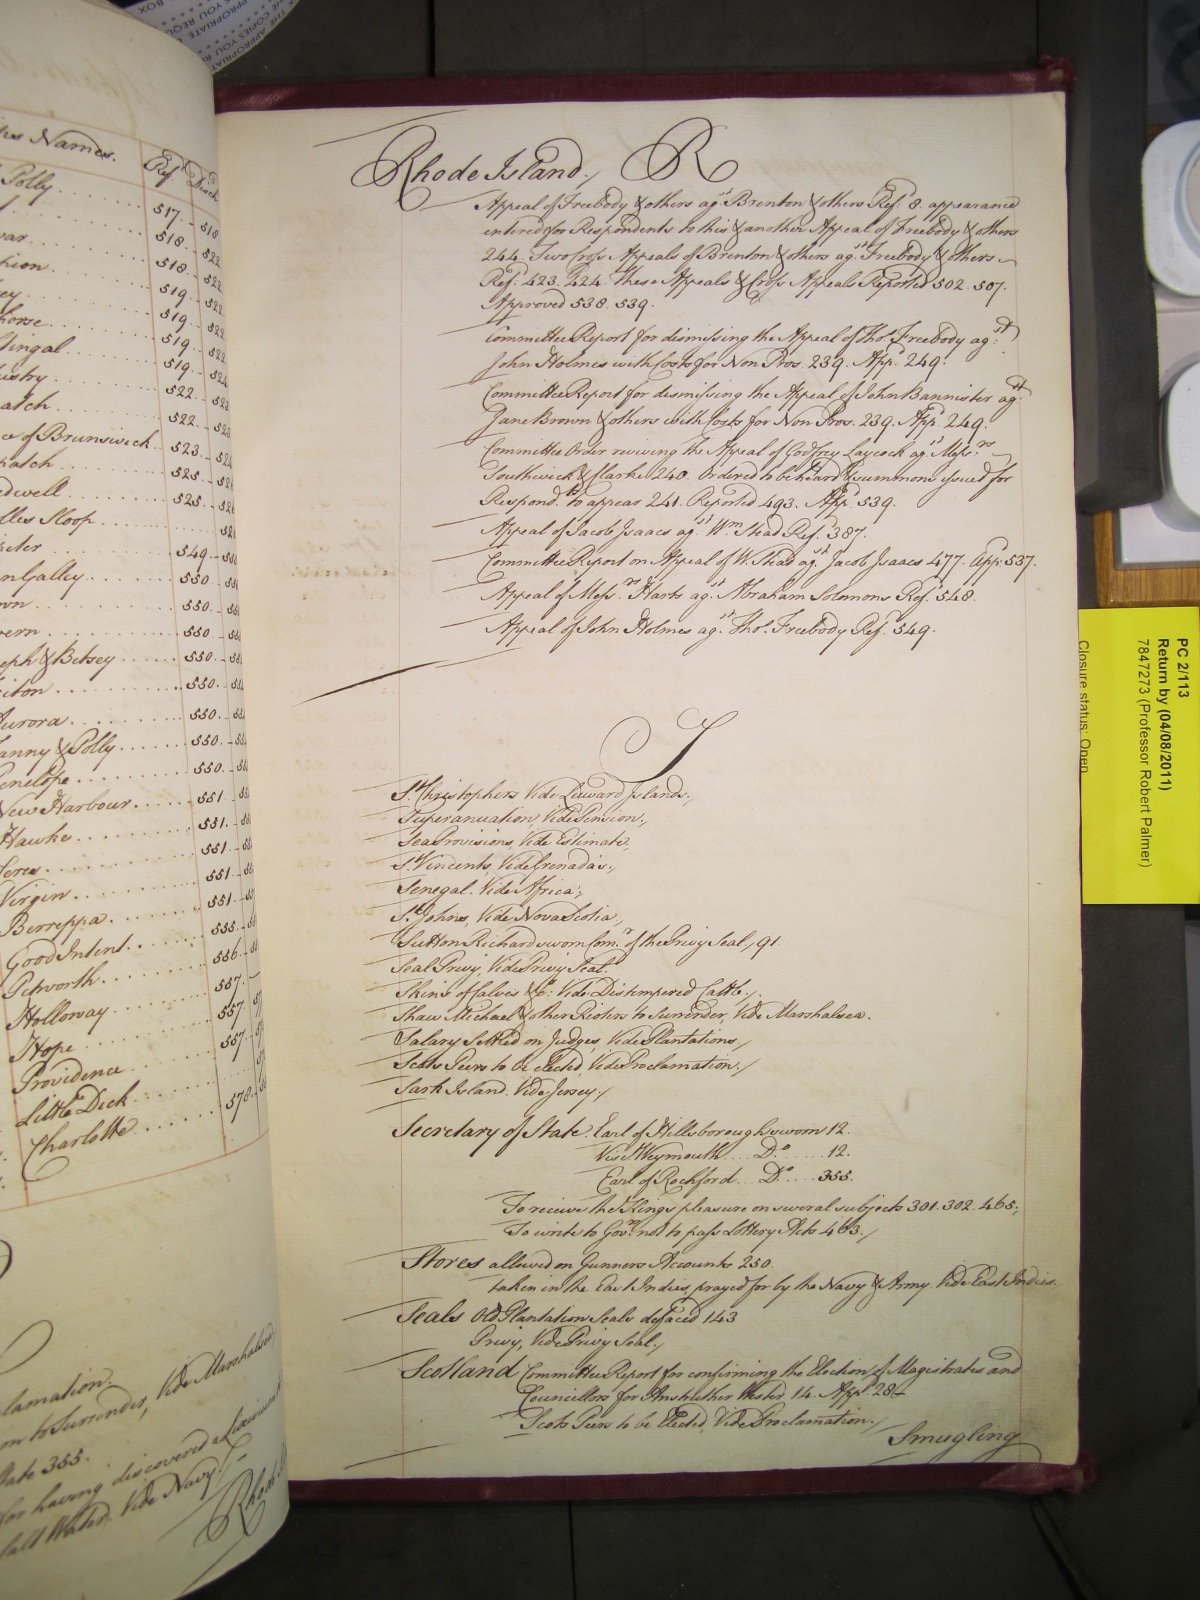 Names.
Ref.d Disch
Polly
517
518
518
519
519
519
519
522
522
of Brunswick 523
525
525
Sloop
549
Galley 550
550
550
& Betsey 550
550
Aurora 550
Fanny & Polly 550
Penelope 550
New Harbour 551
Hawke 551
Ceres 551
Virgin 551
Berreppa 555
Good Intent 556
Petworth 557
Holloway 557
Hope 557
Providence
Little Dick 578
Charlotte
to Surrender, Vide Marshalsea
State 355.
for having discovered
Salt Water, Vide Navy
Rhode
Rhode Island, R
Appeal of Freebody & others ag.st Brenton & others Ref.d 8. appearance
entered for Respondents to this & another Appeal of Freebody & others
244. Two Cross Appeals of Brenton & others ag.st Freebody & others
Ref.d 423. 424. These Appeals & Cross Appeals Reported 502. 507.
Approved 538. 539.
Committee Report for dismissing the Appeal of Tho.s Freebody ag.st
John Holmes with Costs for Non Pros. 239. App.d 249.
Committee Report for dismissing the Appeal of John Bannister ag.st
Jane Brown & others with Costs for Non Pros. 239. App.d 249.
Committee Order reviving the Appeal of Godfrey Laycock ag.st Mess.rs
Southwick & Clarke 240. Ordered to be heard & summons issued for
Respond.ts to appear 241. Reported 493. App.d 539.
Appeal of Jacob Isaacs ag.st W.m Stead Ref.d 387.
Committee Report on Appeal of W. Stead ag.st Jacob Isaacs 477. App.d 537.
Appeal of Mess.rs Harts ag.st Abraham Solomons Ref.d 548.
Appeal of John Holmes ag.st Tho.s Freebody Ref.d 549.
S
S.t Christophers Vide Leeward Islands.
Superanuation, Vide Pension,
Sea Provisions, Vide Estimate,
S.t Vincents, Vide Grenadas,
Senegal. Vide Africa,
S.t Johns, Vide Nova Scotia,
Sutton Richard sworn Com.r of the Privy Seal, 91
Seal Privy, Vide Privy Seal.
Skins of Calves &c. Vide Distempered Cattle,
Shaw Michael & other Rioters to Surrender, Vide Marshalsea.
Salary Settled on Judges, Vide Plantations,
Scots Peers to be Elected, Vide Proclamation,
Sark Island. Vide Jersey,
Secretary of State. Earl of Hillsborough sworn 12.
Visc.t Weymouth D.o 12.
Earl of Rochford D.o 355.
To receive the Kings pleasure on several subjects 301. 302. 465;
To write to Gov.rs not to pass Lottery Acts 463.
Stores allowed on Gunners Accounts 250.
taken in the East Indies, prayed for by the Navy & Army. Vide East Indies.
Seals Old Plantation Seals defaced 143
Privy, Vide Privy Seal,
Scotland Committee Report for confirming the Election of Magistrates and
Councillors for Anstruther Wester 14. App.d 28
Scots Peers to be Elected, Vide Proclamation,
Smugling
PC 2/113
Return by (04/08/2011)
7847273 (Professor Robert Palmer)
Closure status: Open